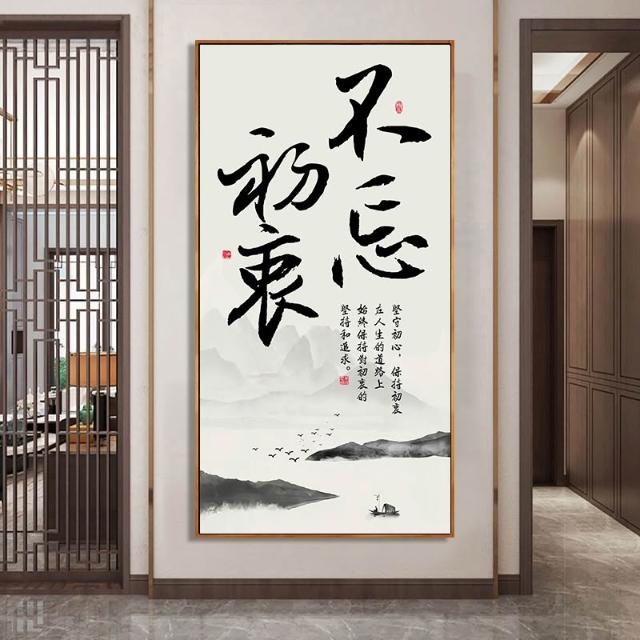 不忘
初衷
坚守初心，保持初衷
在人生的道路上
始终保持对初衷的
坚持和追求。